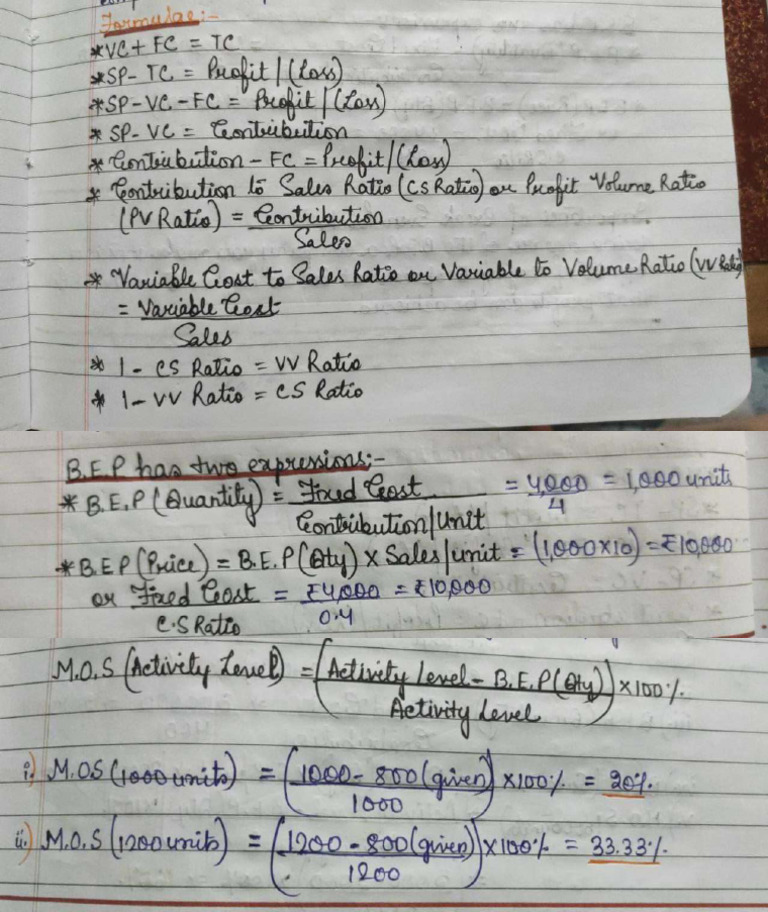 Formulae:-
*VC+ FC = TC
*SP- TC = Profit/(Loss)
*SP-VC-FC = Profit/(Loss)
* SP-VC = Contribution
* Contribution - FC = Profit/(Loss)
* Contribution to Sales Ratio (CS Ratio) or Profit Volume Ratio
(PV Ratio) = Contribution
Sales
* Variable Cost to Sales Ratio or Variable to Volume Ratio (VV Ratio)
= Variable Cost
Sales
* 1 - CS Ratio = VV Ratio
* 1 - VV Ratio = CS Ratio
B.E.P has two expressions:-
* B.E.P (Quantity) = Fixed Cost = 4,000 = 1,000 units
Contribution/Unit 4
*B.E.P (Price) = B.E.P (Qty) x Sales/unit = (1,000x10) = ₹10,000
or Fixed Cost = ₹4,000 = ₹10,000
C.S Ratio 0.4
M.O.S (Activity Level) = (Activity Level - B.E.P (Qty)) x100%
Activity Level
i) M.O.S (1000 units) = (1000 - 800 (given)) x100% = 20%.
1000
ii) M.O.S (1200 units) = (1200 - 800 (given)) x100% = 33.33%.
1200